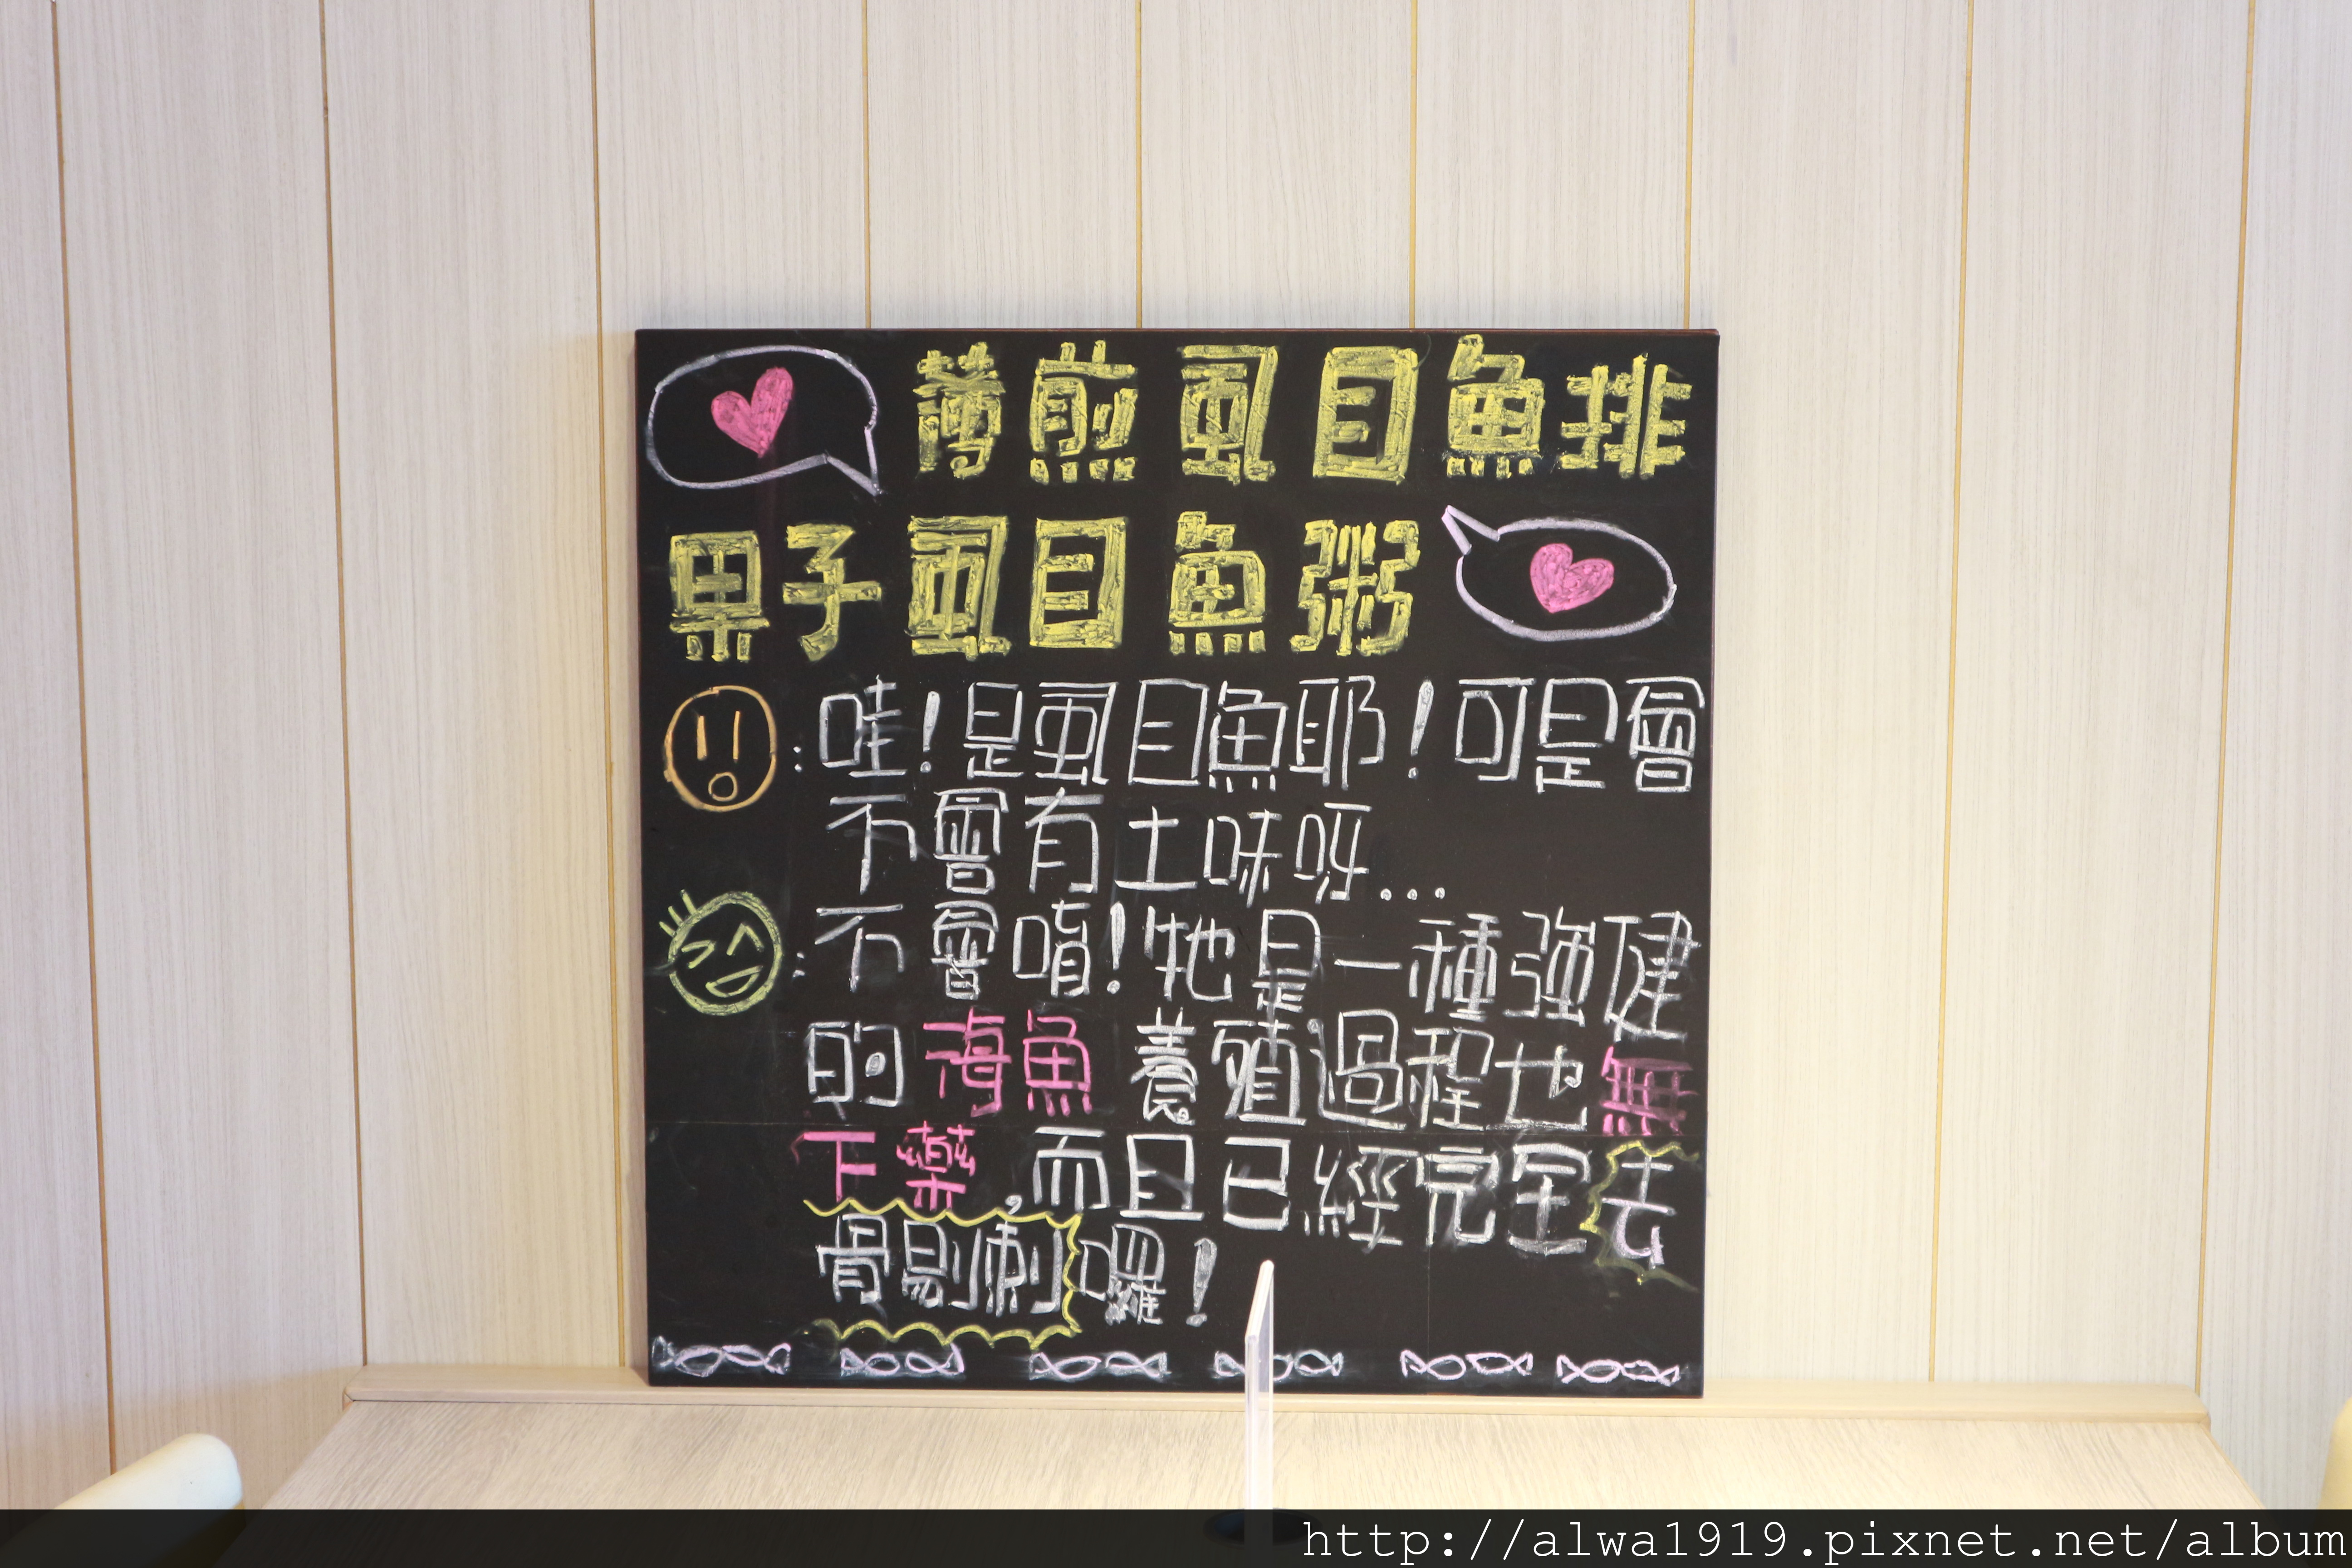 薄煎虱目魚排
果子虱目魚粥
:哇!是虱目魚耶!可是會
不會有土味呀...
:不會唷!牠是一種強健
的海魚養殖過程也無
下藥,而且已經完全去
骨剔刺囉!
http://alwa1919.pixnet.net/album